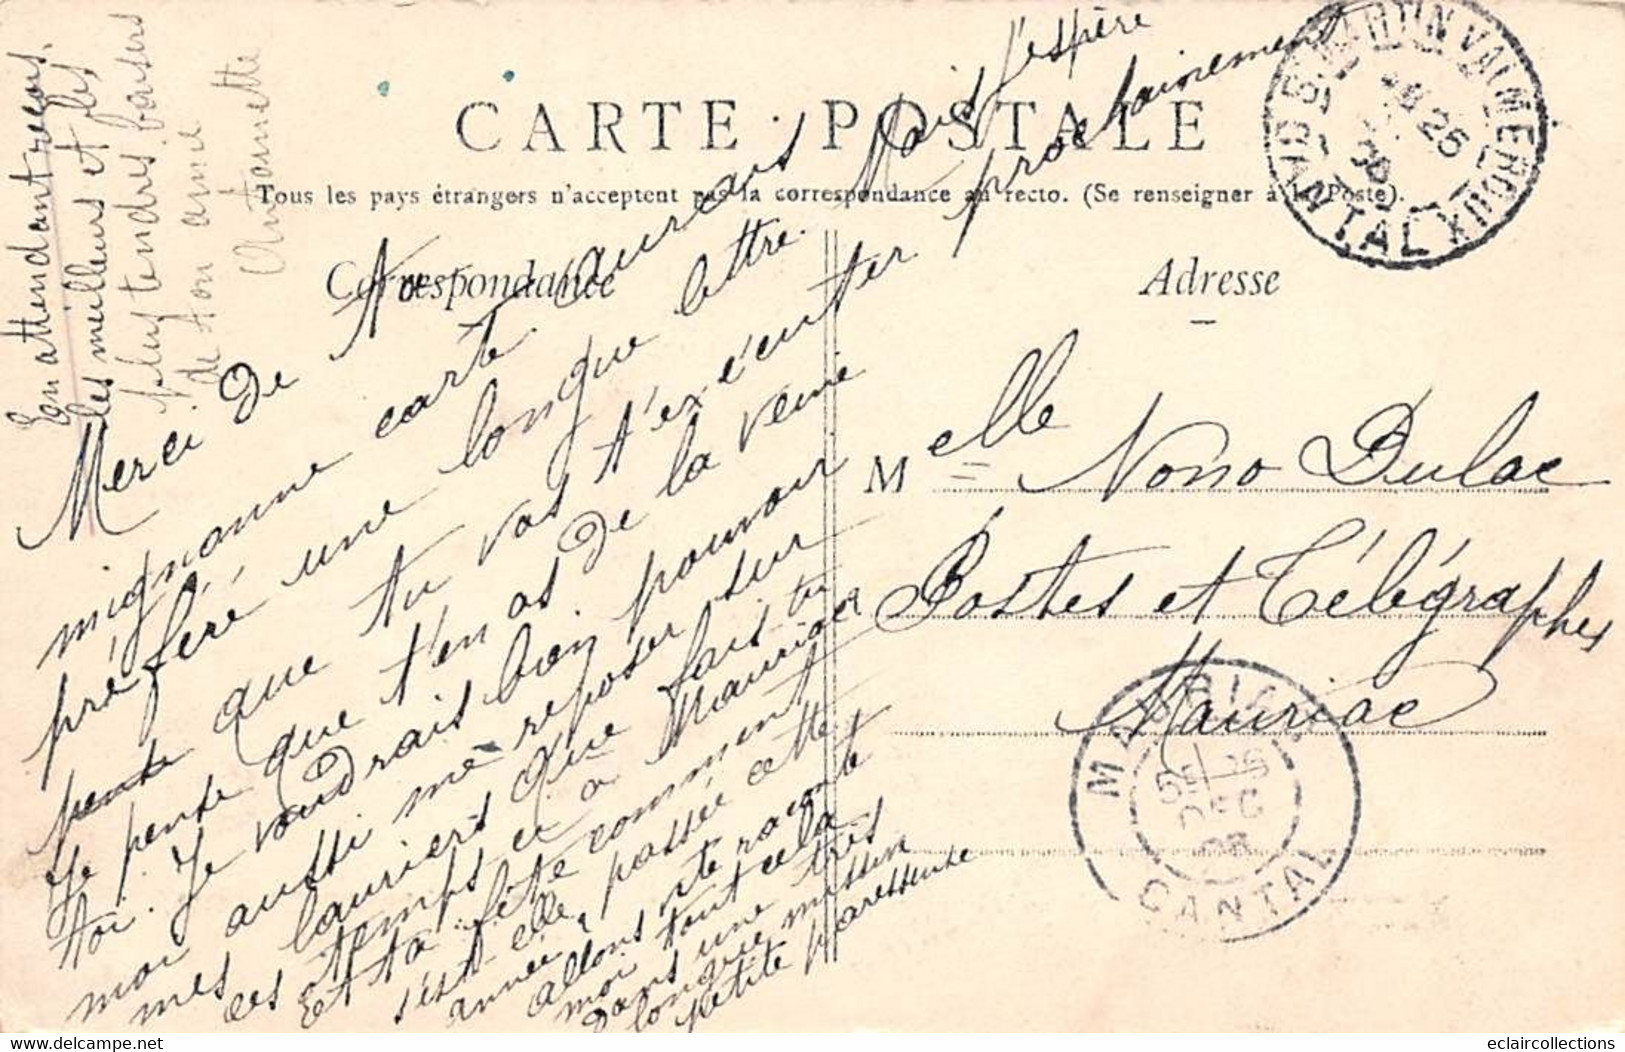 CARTE POSTALE
Tous les pays étrangers n'acceptent pas la correspondance au recto. (Se renseigner à la Poste).
Correspondance
Adresse
Merci de ta
mignonne carte. j'aurais
préféré une longue lettre. Mais j'espère
pense que tu vas t'exécuter prochainement
Je pense que t'en as de la veine
toi. Je voudrais bien pouvoir
moi aussi me reposer sur
mes lauriers. Que fais tu
ces temps ci à Mauriac
Et ta fête comment
s'est-elle passée cette
année,
allons vite raconte
moi tout cela
dans une très
longue missive
petite paresseuse
En attendant reçois
les meilleurs et les
plus tendres baisers
de ton amie
Antoinette
Melle Nono Dulac
Postes et Télégraphes
Mauriac
ST MARTIN VALMEROUX
CANTAL
25
MAURIAC
DEC
08
CANTAL
eclaircollections